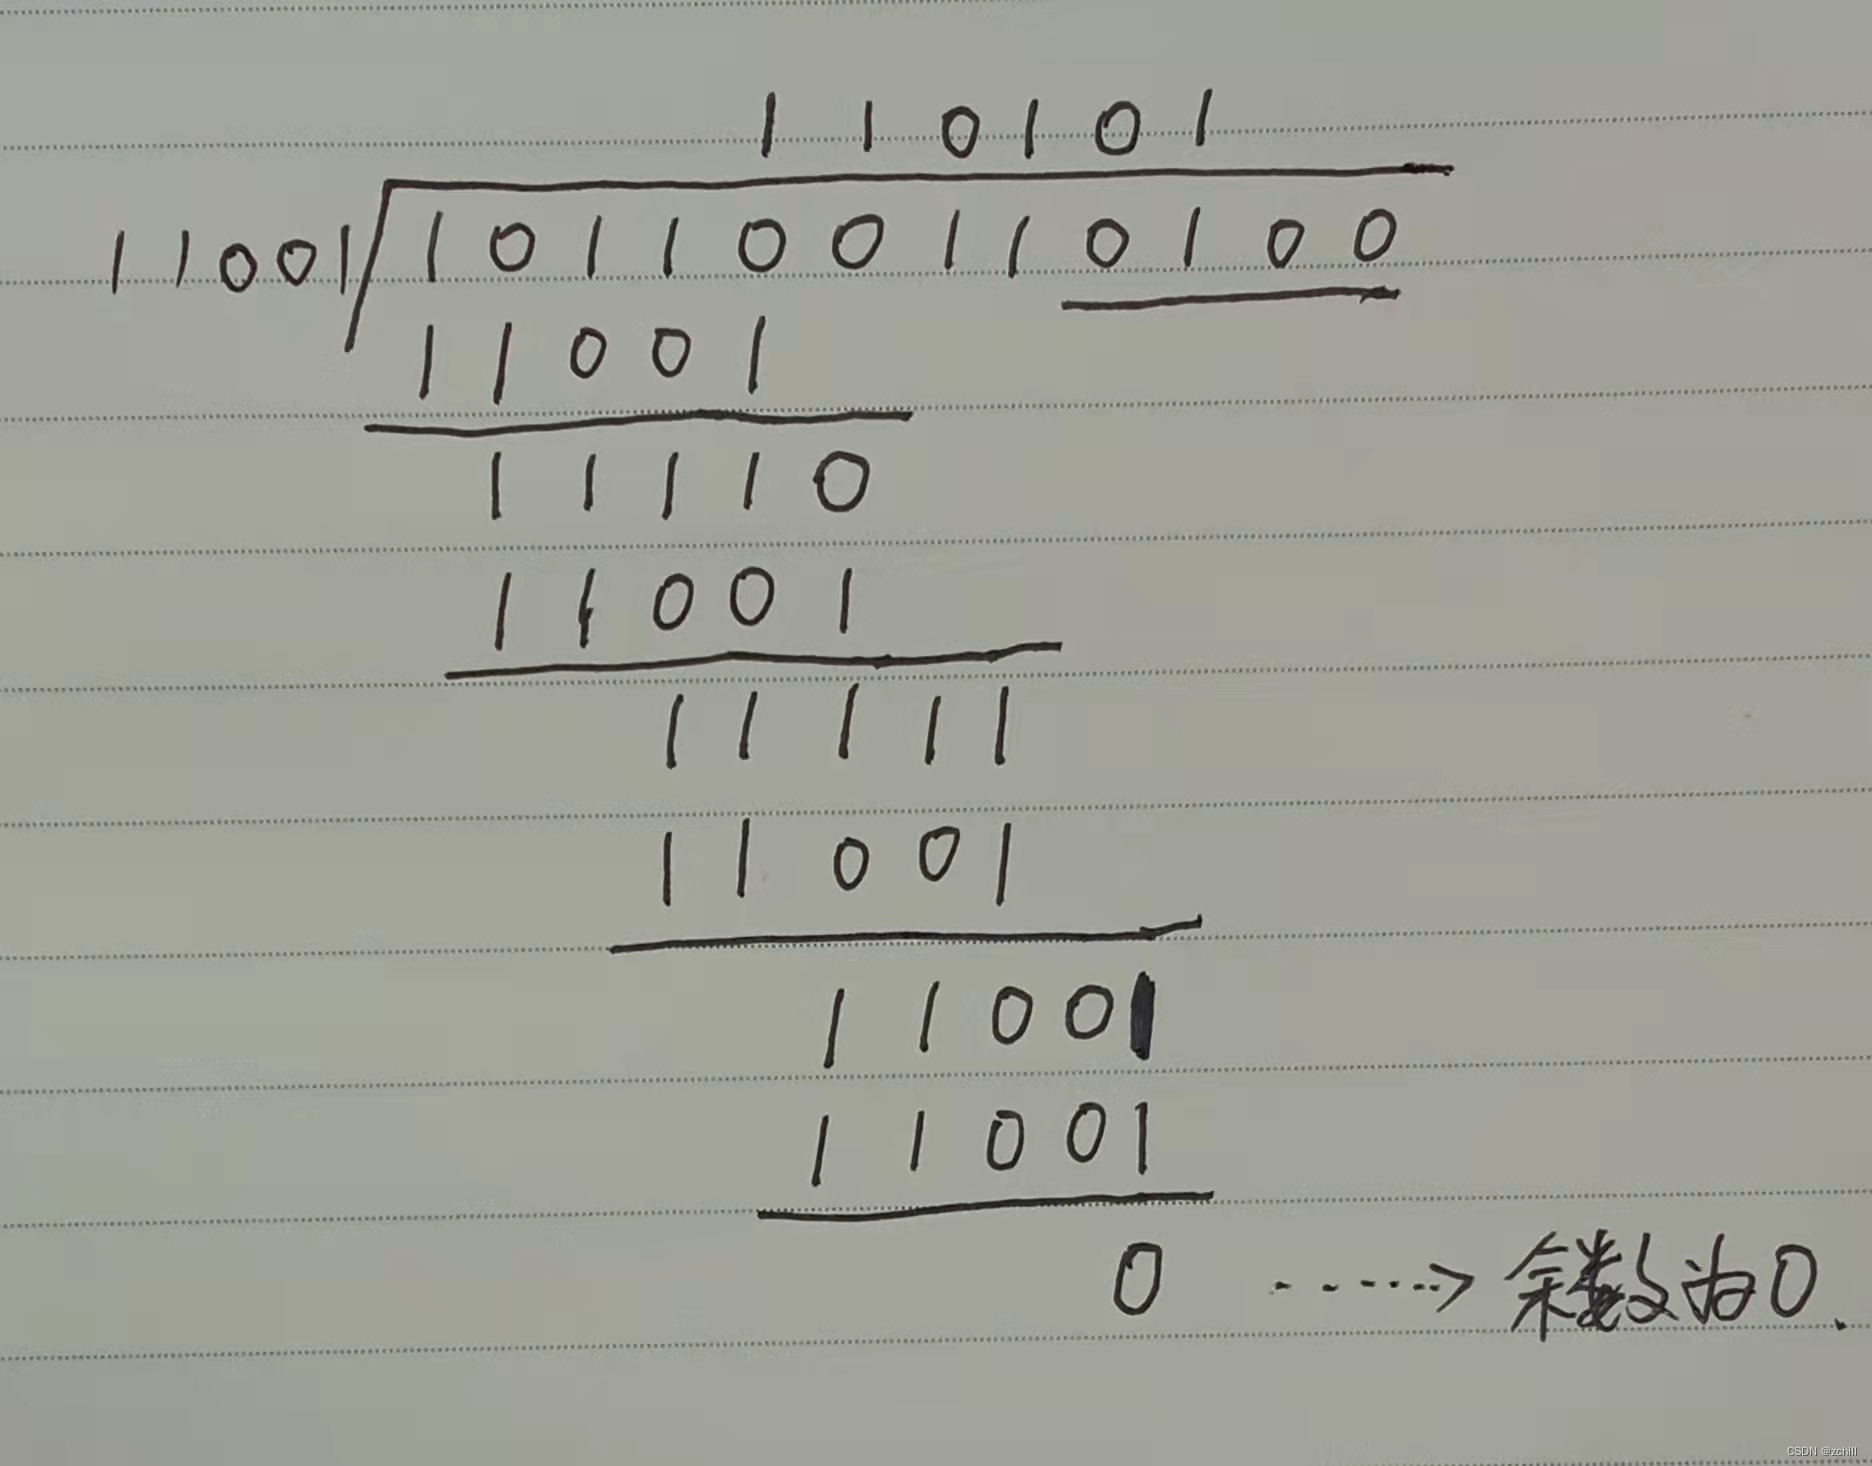 110101
11001 101100110100
11001
11110
11001
11111
11001
11001
11001
0 ·····> 余数为0.
CSDN @zchill